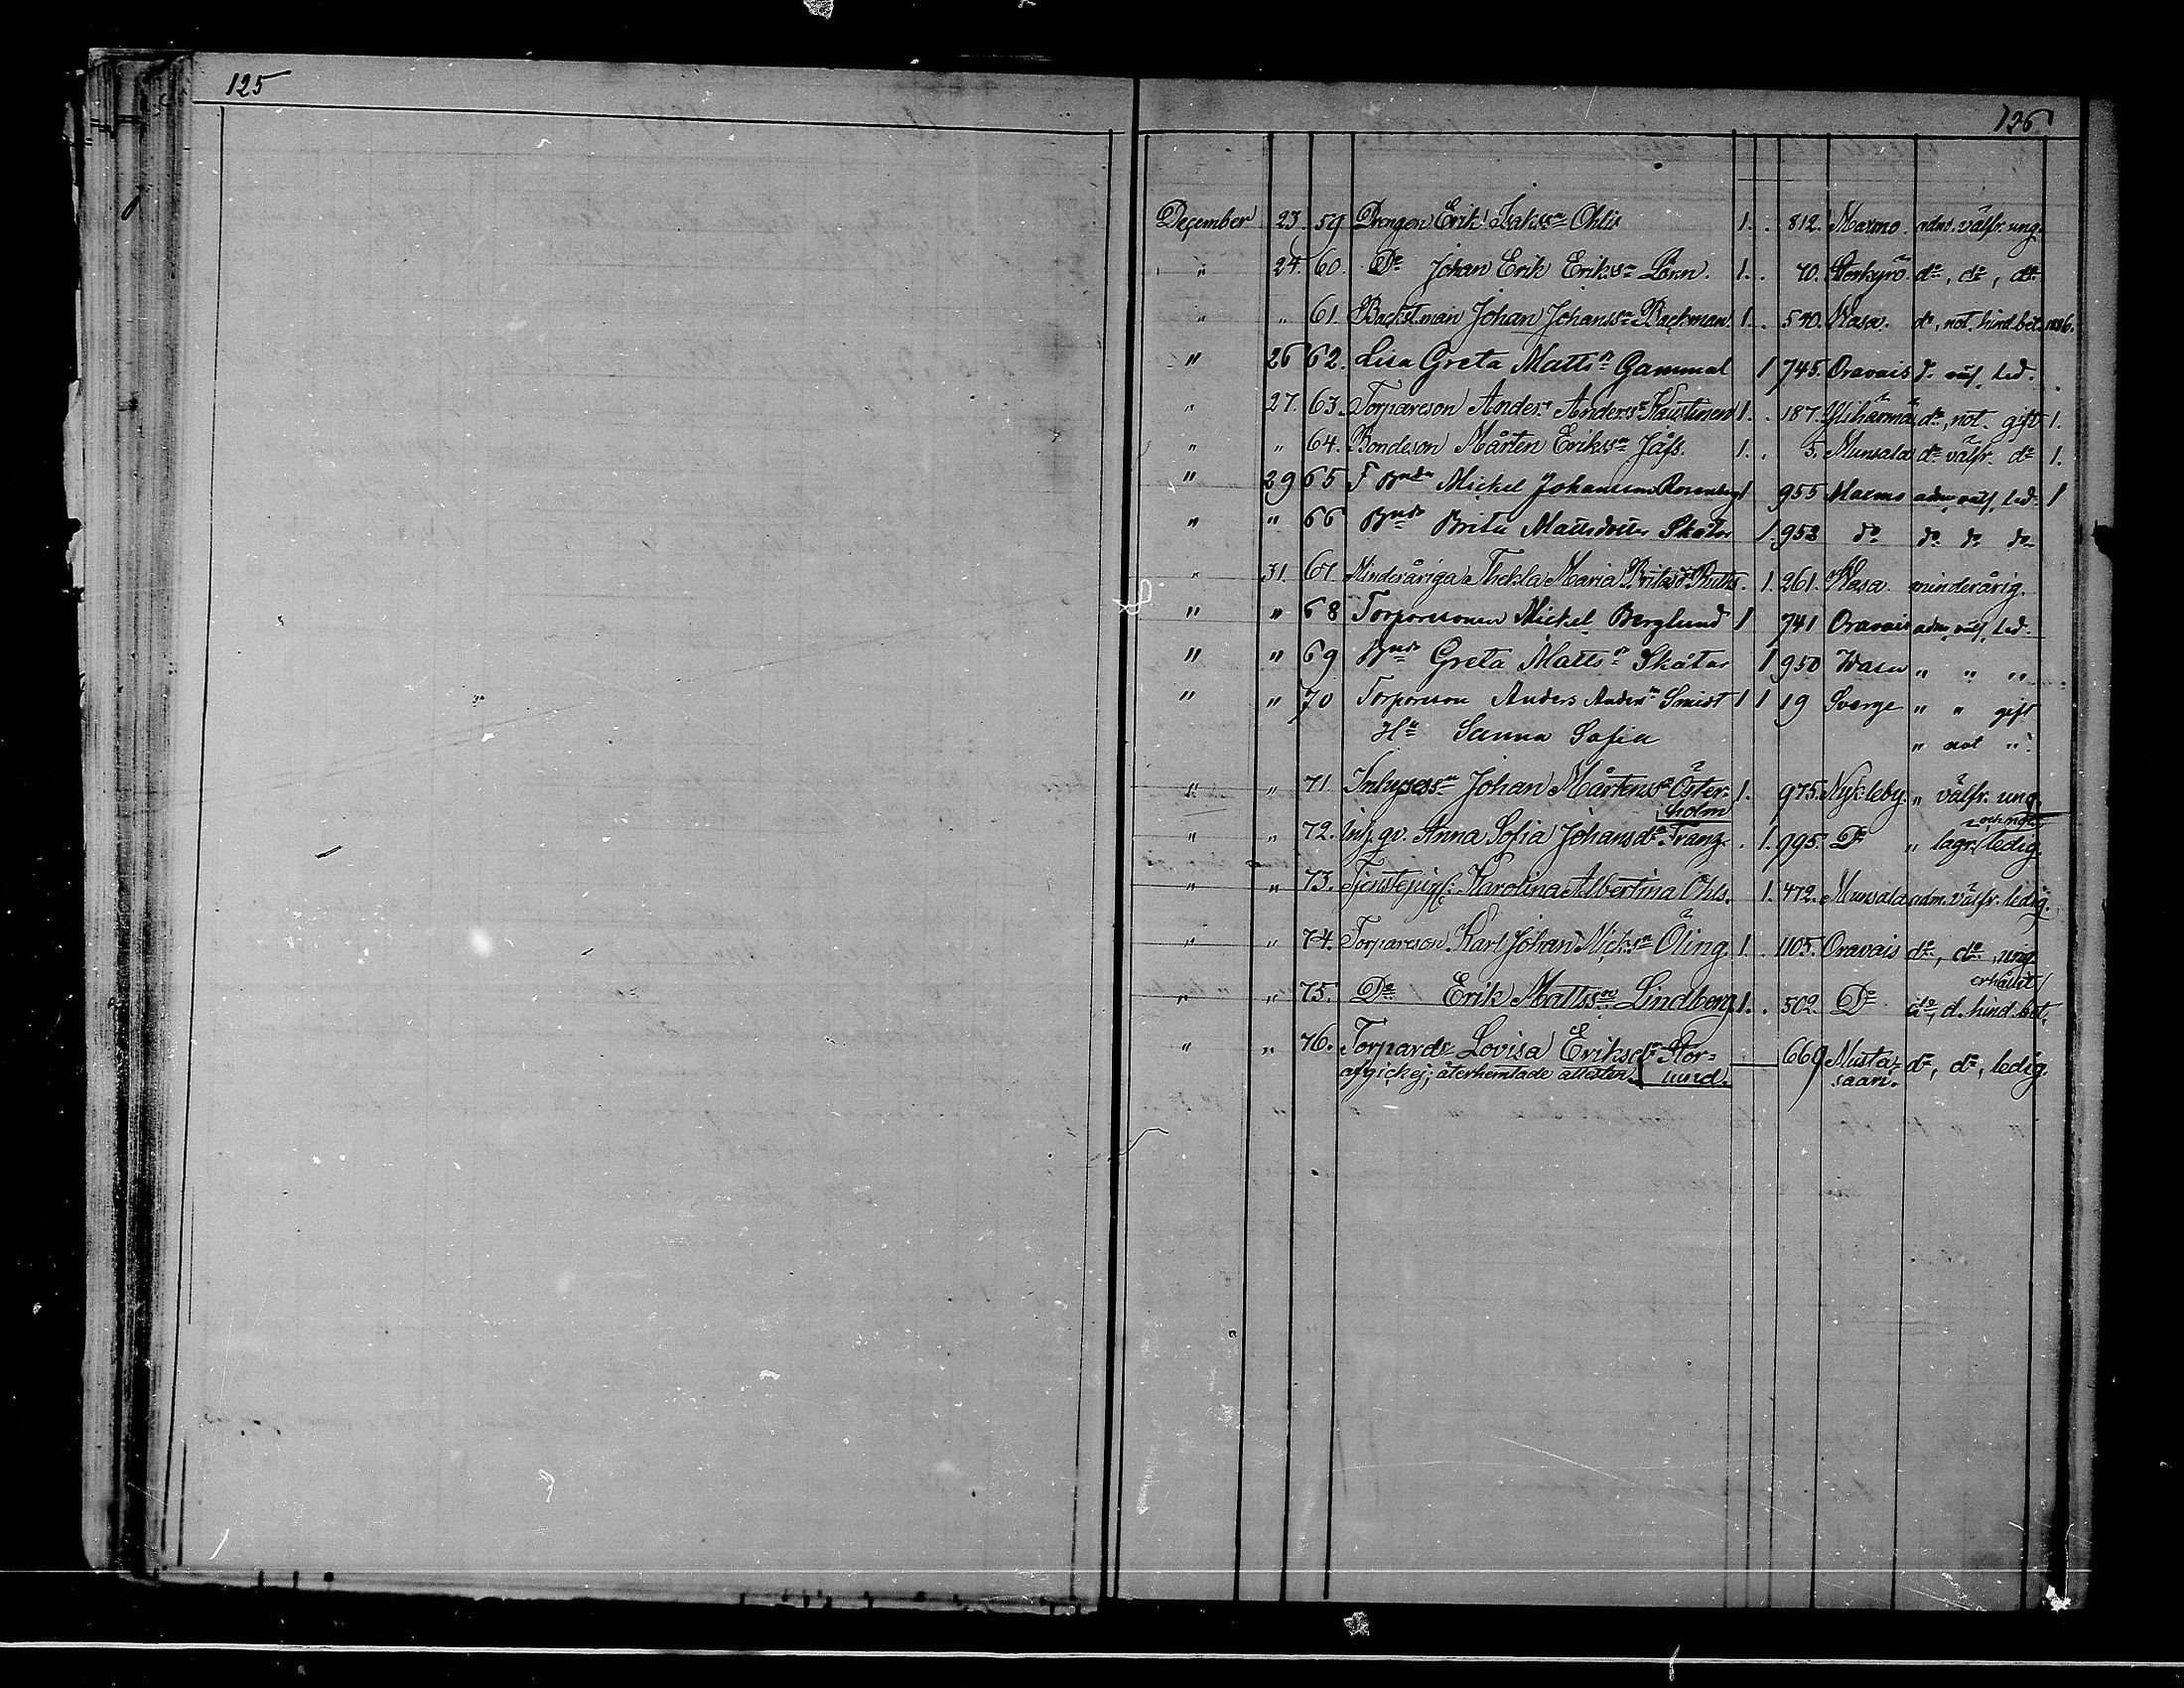 125
126
December 23. 59 Drengen Erik Isakss:n Ohlis 1. . 812. Maxmo adm. välfr. ung.
" 24. 60. D:o Johan Erik Erikss:n Lönn. 1. . 70. Storkyrö. d:o, d:o, d:o
" " 61. Backstman Johan Johanss:n Backman. 1. . 540. Wasa. d:o, not. hind. bet. 1886.
" 26 62. Lisa Greta Matts:n Gammal 1 745. Oravais d:o välf. led.
" 27. 63. Torpareson Anders Anderss:n Kaustinen 1. . 187. Ylihärmä d:o, not. gift 1.
" " 64. Bondeson Mårten Erikss:n Jåfs. 1. . 5. Munsala d:o välfr. d:o 1.
" 29 65 F Bnde Mickel Johansson Rosenberg 1 955 Maxmo adm. välf. led. 1
" " 66 Brita Mattsdotter Skåtar 1. 953 d:o d:o d:o d:o
" 31. 67. Minderåriga Thekla Maria Britasd:r Ruths. . 1. 261. Wasa. minderårig.
" " 68 Torparesonen Mickel Berglund 1 741 Oravais adm. välf. led.
" " 69 Greta Matts:n Skåtar 1 950 Wasa " " "
" " 70 Torpareson Anders Anders:n Smist 1 1 19 Sverge " " gift
H:u Sanna Sofia " not "
" " 71. Inhysess:n Johan Mårtenss:n Öster- 1. 975. Nykleby. " välfr. ung.
holm
" " 72. Inh. gv. Anna Sofia Johansd:r Franz. . 1. 995. D:o " lagr. ledig.
" " 73. Tjenstepig: Karolina Albertina Ohls. 1. 472. Munsala adm. välfr. ledig.
" " 74. Torpareson. Karl Johan Micks:n Öling. 1. . 1105. Oravais d:o, d:o, ung.
erhållit
" " 75. D:o Erik Mattss:n Lindberg. 1. . 502. D:o d:o, d. hind. bet.
" " 76. Torpard:r Lovisa Eriksd:r Stor- 669 Musta- d:o, d:o, ledig.
afgick ej, återhemtade attesten. lund. saari.